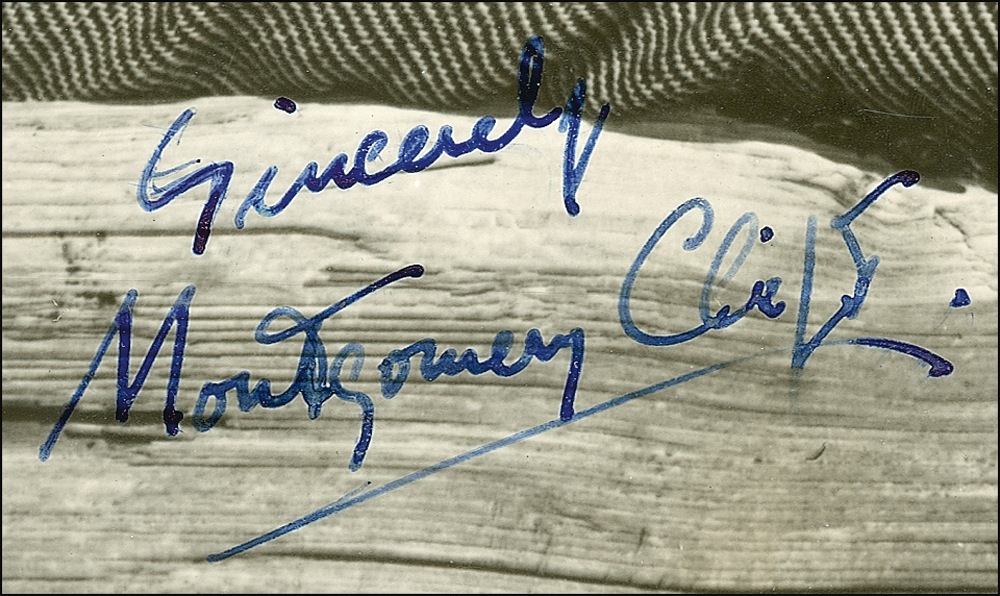 Sincerely
Montgomery Clift.